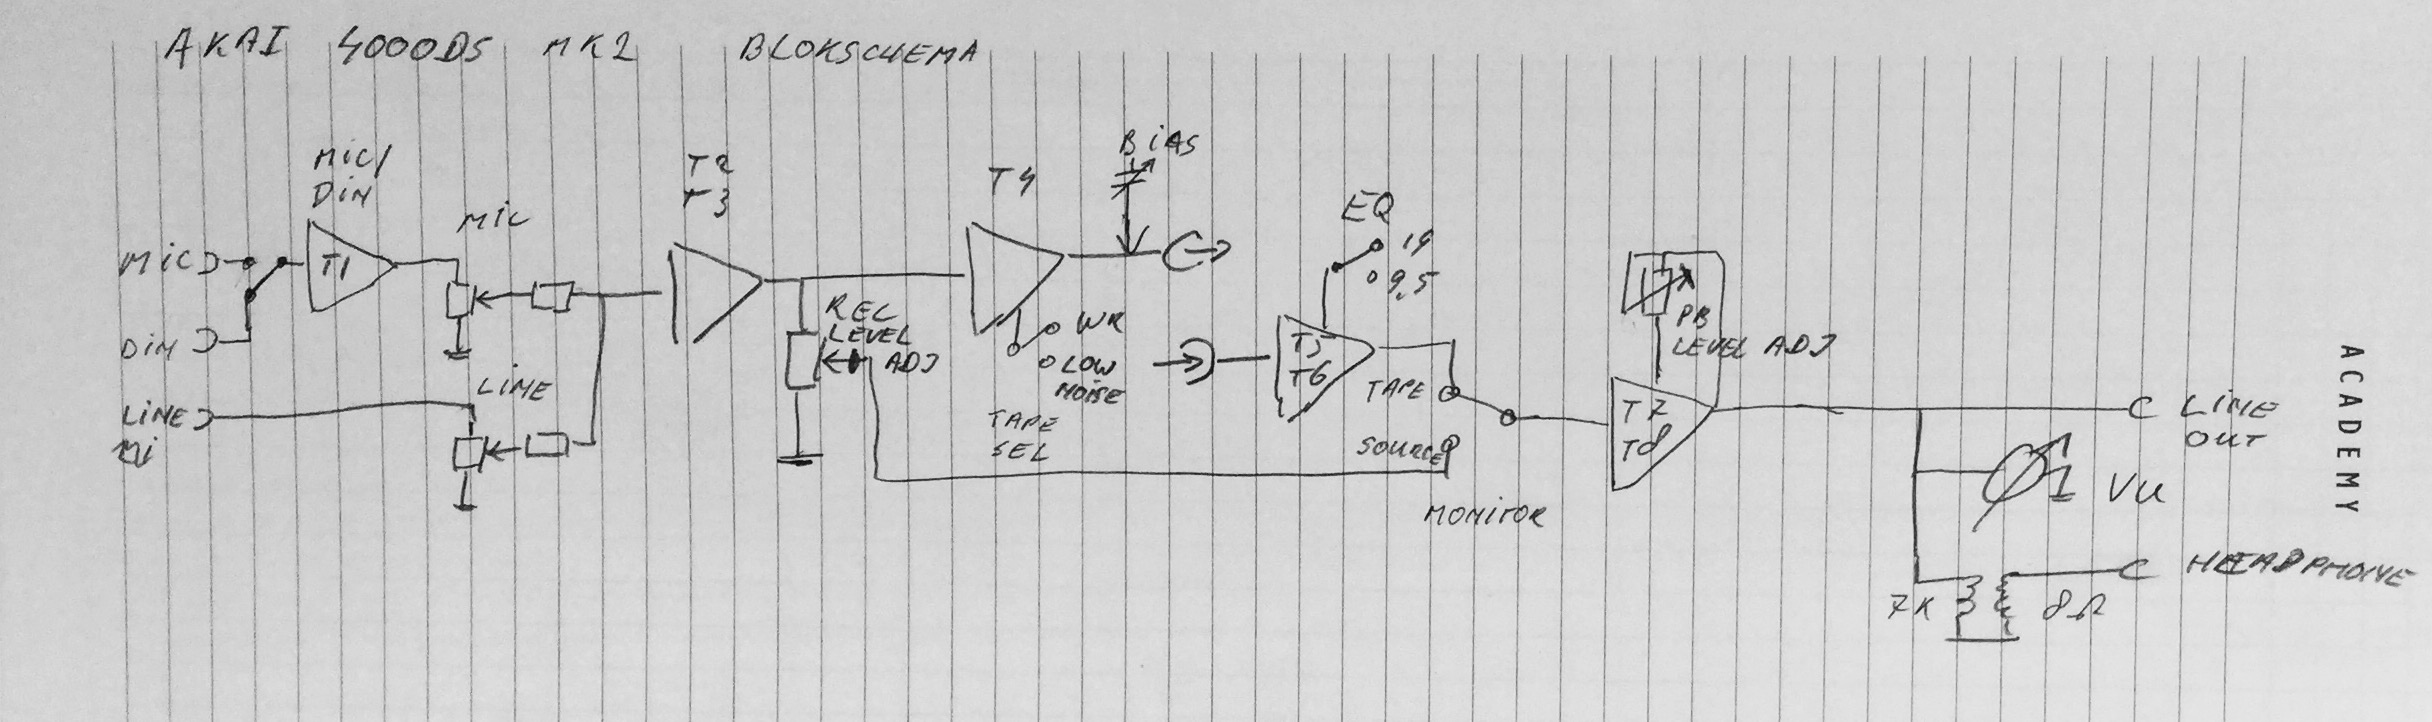 AKAI 4000DS MK2 BLOKSCHEMA
MIC/
DIN
MIC
DIN
LINE
T1
MIC
LINE
T2
T3
REC
LEVEL
ADJ
T4
BIAS
WR
LOW
NOISE
TAPE
SEL
EQ
19
9,5
T5
T6
TAPE
SOURCE
MONITOR
PB
LEVEL ADJ
T7
T8
LINE
OUT
VU
HEADPHONE
7K
8Ω
ACADEMY